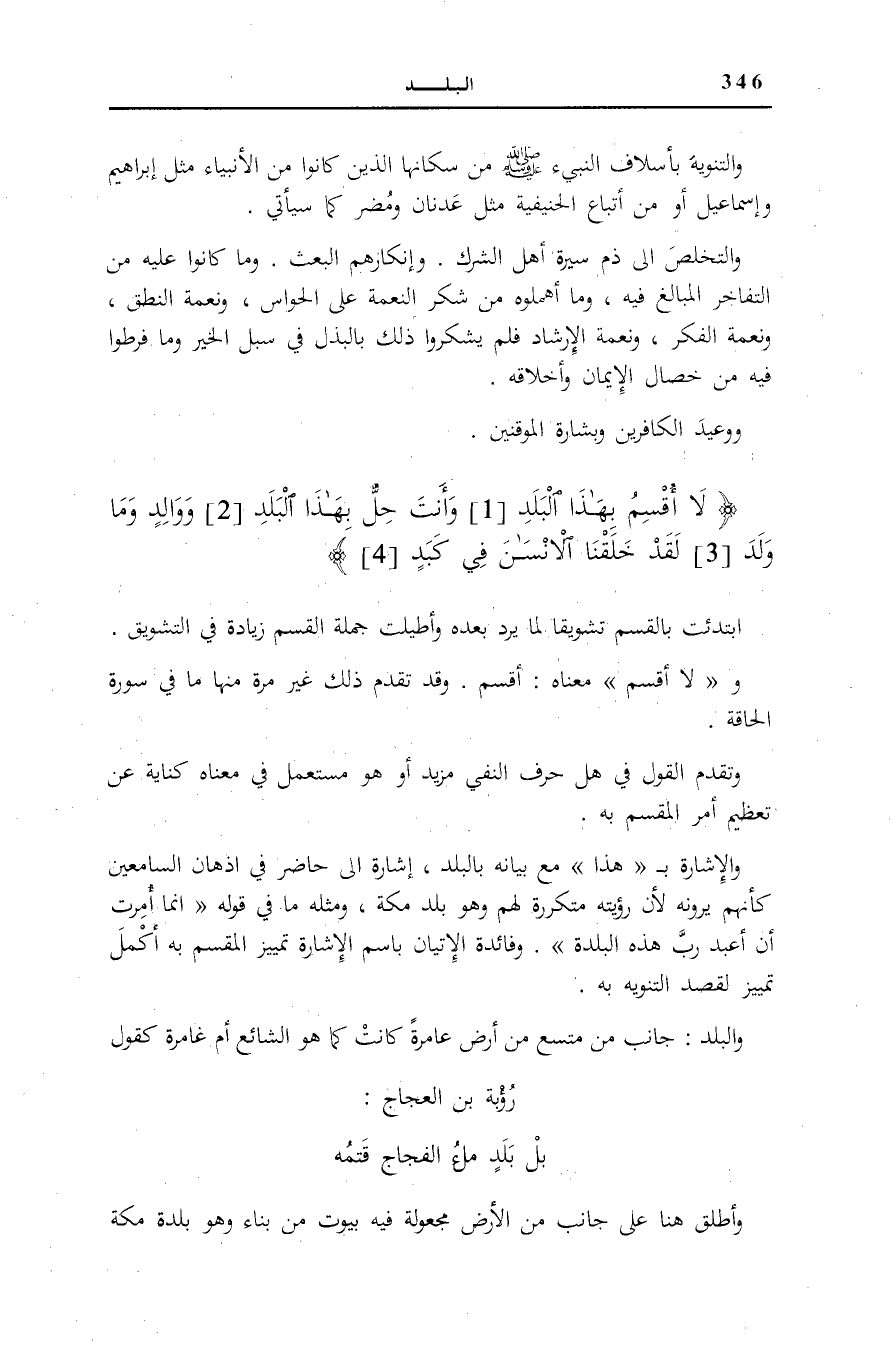 346
البلـــــد
والتنويهَ بأسلاف النبيء ﷺ من سكانها الذين كانوا من الأنبياء مثل إبراهيم
وإسماعيل أو من أتباع الحنيفية مثل عَدنان ومُضر كما سيأتي .
والتخلصَ الى ذم سيرة أهل الشرك . وإنكارهم البعث . وما كانوا عليه من
التفاخر المبالغ فيه ، وما أهملوه من شكر النعمة على الحواس ، ونعمة النطق ،
ونعمة الفكر ، ونعمة الإرشاد فلم يشكروا ذلك بالبذل في سبل الخير وما فرطوا
فيه من خصال الإيمان وأخلاقه .
ووعيدَ الكافرين وبشارة الموقنين .
﴿ لَا أُقْسِمُ بِهَـٰذَا ٱلْبَلَدِ [1] وَأَنتَ حِلٌّ بِهَـٰذَا ٱلْبَلَدِ [2] وَوَالِدٍ وَمَا
وَلَدَ [3] لَقَدْ خَلَقْنَا ٱلْانْسَـٰنَ فِي كَبَدٍ [4] ﴾
ابتدئت بالقسم تشويقا لما يرد بعده وأطيلت جملة القسم زيادة في التشويق .
و « لا أقسم » معناه : أقسم . وقد تقدم ذلك غير مرة منها ما في سورة
الحاقة .
وتقدم القول في هل حرف النفي مزيد أو هو مستعمل في معناه كناية عن
تعظيم أمر المقسم به .
والإشارة بـ « هذا » مع بيانه بالبلد ، إشارة الى حاضر في اذهان السامعين
كأنهم يرونه لأن رؤيته متكررة لهم وهو بلد مكة ، ومثله ما في قوله « انما أُمِرت
أن أعبد ربَّ هذه البلدة » . وفائدة الإتيان باسم الإشارة تمييز المقسم به أكْملَ
تمييز لقصد التنويه به .
والبلد : جانب من متسع من أرض عامرةً كانتْ كما هو الشائع أم غامرة كقول
رُؤْبة بن العجاج :
بلْ بَلَدٍ ملءُ الفجاج قَتمُه
وأطلق هنا على جانب من الأرض مجعولة فيه بيوت من بناء وهو بلدة مكة